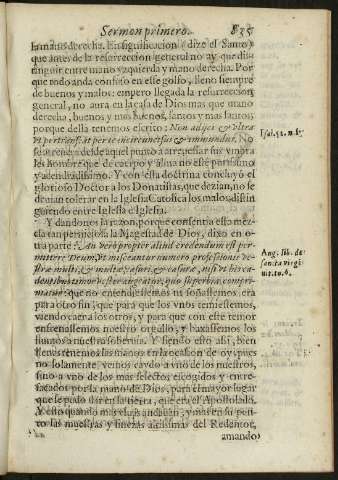 Sermon primero. 835
la mano derecha. En significacion (dize el Santo)
que antes de la resurreccion general no ay que dis-
tinguir entre mano yzquierda y mano derecha. Por
que todo anda confuso en este golfo, lleno siempre
de buenos y malos: empero llegada la resurreccion
general, no aura en la casa de Dios mas que mano
derecha, buenos y mas buenos, santos y mas santos;
porque della tenemos escrito: Non adijciet vltra
vt pertranseat per te incircuncisus & immundus. No
se atreuera desde aquel punto a atrauessar sus vmbra
les hombre que de cuerpo y alma no esté purissimo
y acendradissimo. Y con esta doctrina concluyó el
glorioso Doctor a los Donatistas, que dezian, no se
deuian tolerar en la Iglesia Catolica los malos, distin
guiendo entre Iglesia e Iglesia.
Isai. 52. n. 1.
Y dandonos la razon, porque consentia esta mez-
cla tan perniciosa la Magestad de Dios, dixo en o-
tra parte: An verò propter aliud credendum est per-
mittere Deum, vt misceantur numero professionis ve-
stræ multi, & multæ, casuri & casuræ, nisi vt his ca-
dentibus timor vester augeatur, quo superbia compri-
matur: que no enseñassemos
Aug. lib. de
sancta virgi
nit. to. 6.
para otro sin, para que los vnos temiessemos,
viendo caer a los otros, y para que con este temor
enfrenassemos nuestro orgullo, y baxassemos los
humos a nuestra soberuia. Y siendo esto assi, bien
llenas tenemos las manos en la ocasion de oy, pues
no solamente vemos caydo a vno de los nuestros,
sino a vno de los mas selectos, escogidos y entre-
sacados por la mano de Dios, para el mayor lugar
que se pudo dar en la tierra, que era el Apostolado.
Y esto quando mas en su pun-
to las muestras y finezas del Redentor,
amando